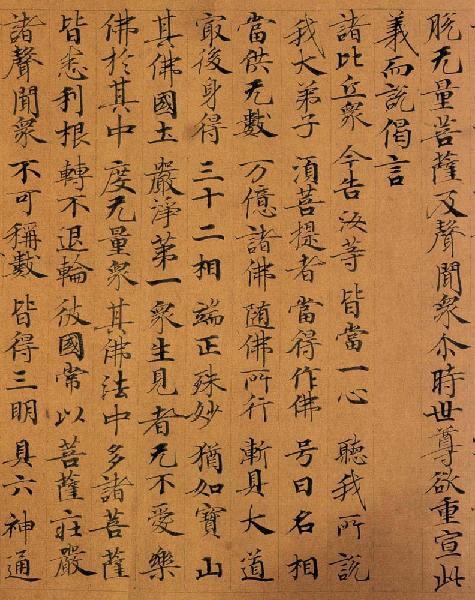 脱无量菩薩及聲聞衆尒時世尊欲重宣此
義而說偈言
諸比丘衆 今告汝等 皆當一心 聽我所說
我大弟子 須菩提者 當得作佛 号曰名相
當供无數 万億諸佛 随佛所行 漸具大道
冣後身得 三十二相 端正殊妙 猶如寶山
其佛國土 嚴淨第一 衆生見者 无不愛樂
佛於其中 度无量衆 其佛法中 多諸菩薩
皆悉利根 轉不退輪 彼國常以 菩薩莊嚴
諸聲聞衆 不可稱數 皆得三明 具六神通